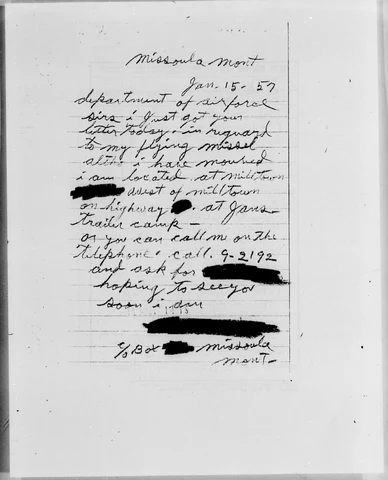 missoula mont
Jan. 15 - 57
department of airforce
sirs i Just got your
letter today. in reguard
to my flying missel
altho i have mouved
i am located at milltown
west of milltown
on highway at Jans
trailer camp -
or you can call me on the
telephone. call. 9-2192
and ask for
hoping to see you
soon i am
c/o Box missoula
mont -